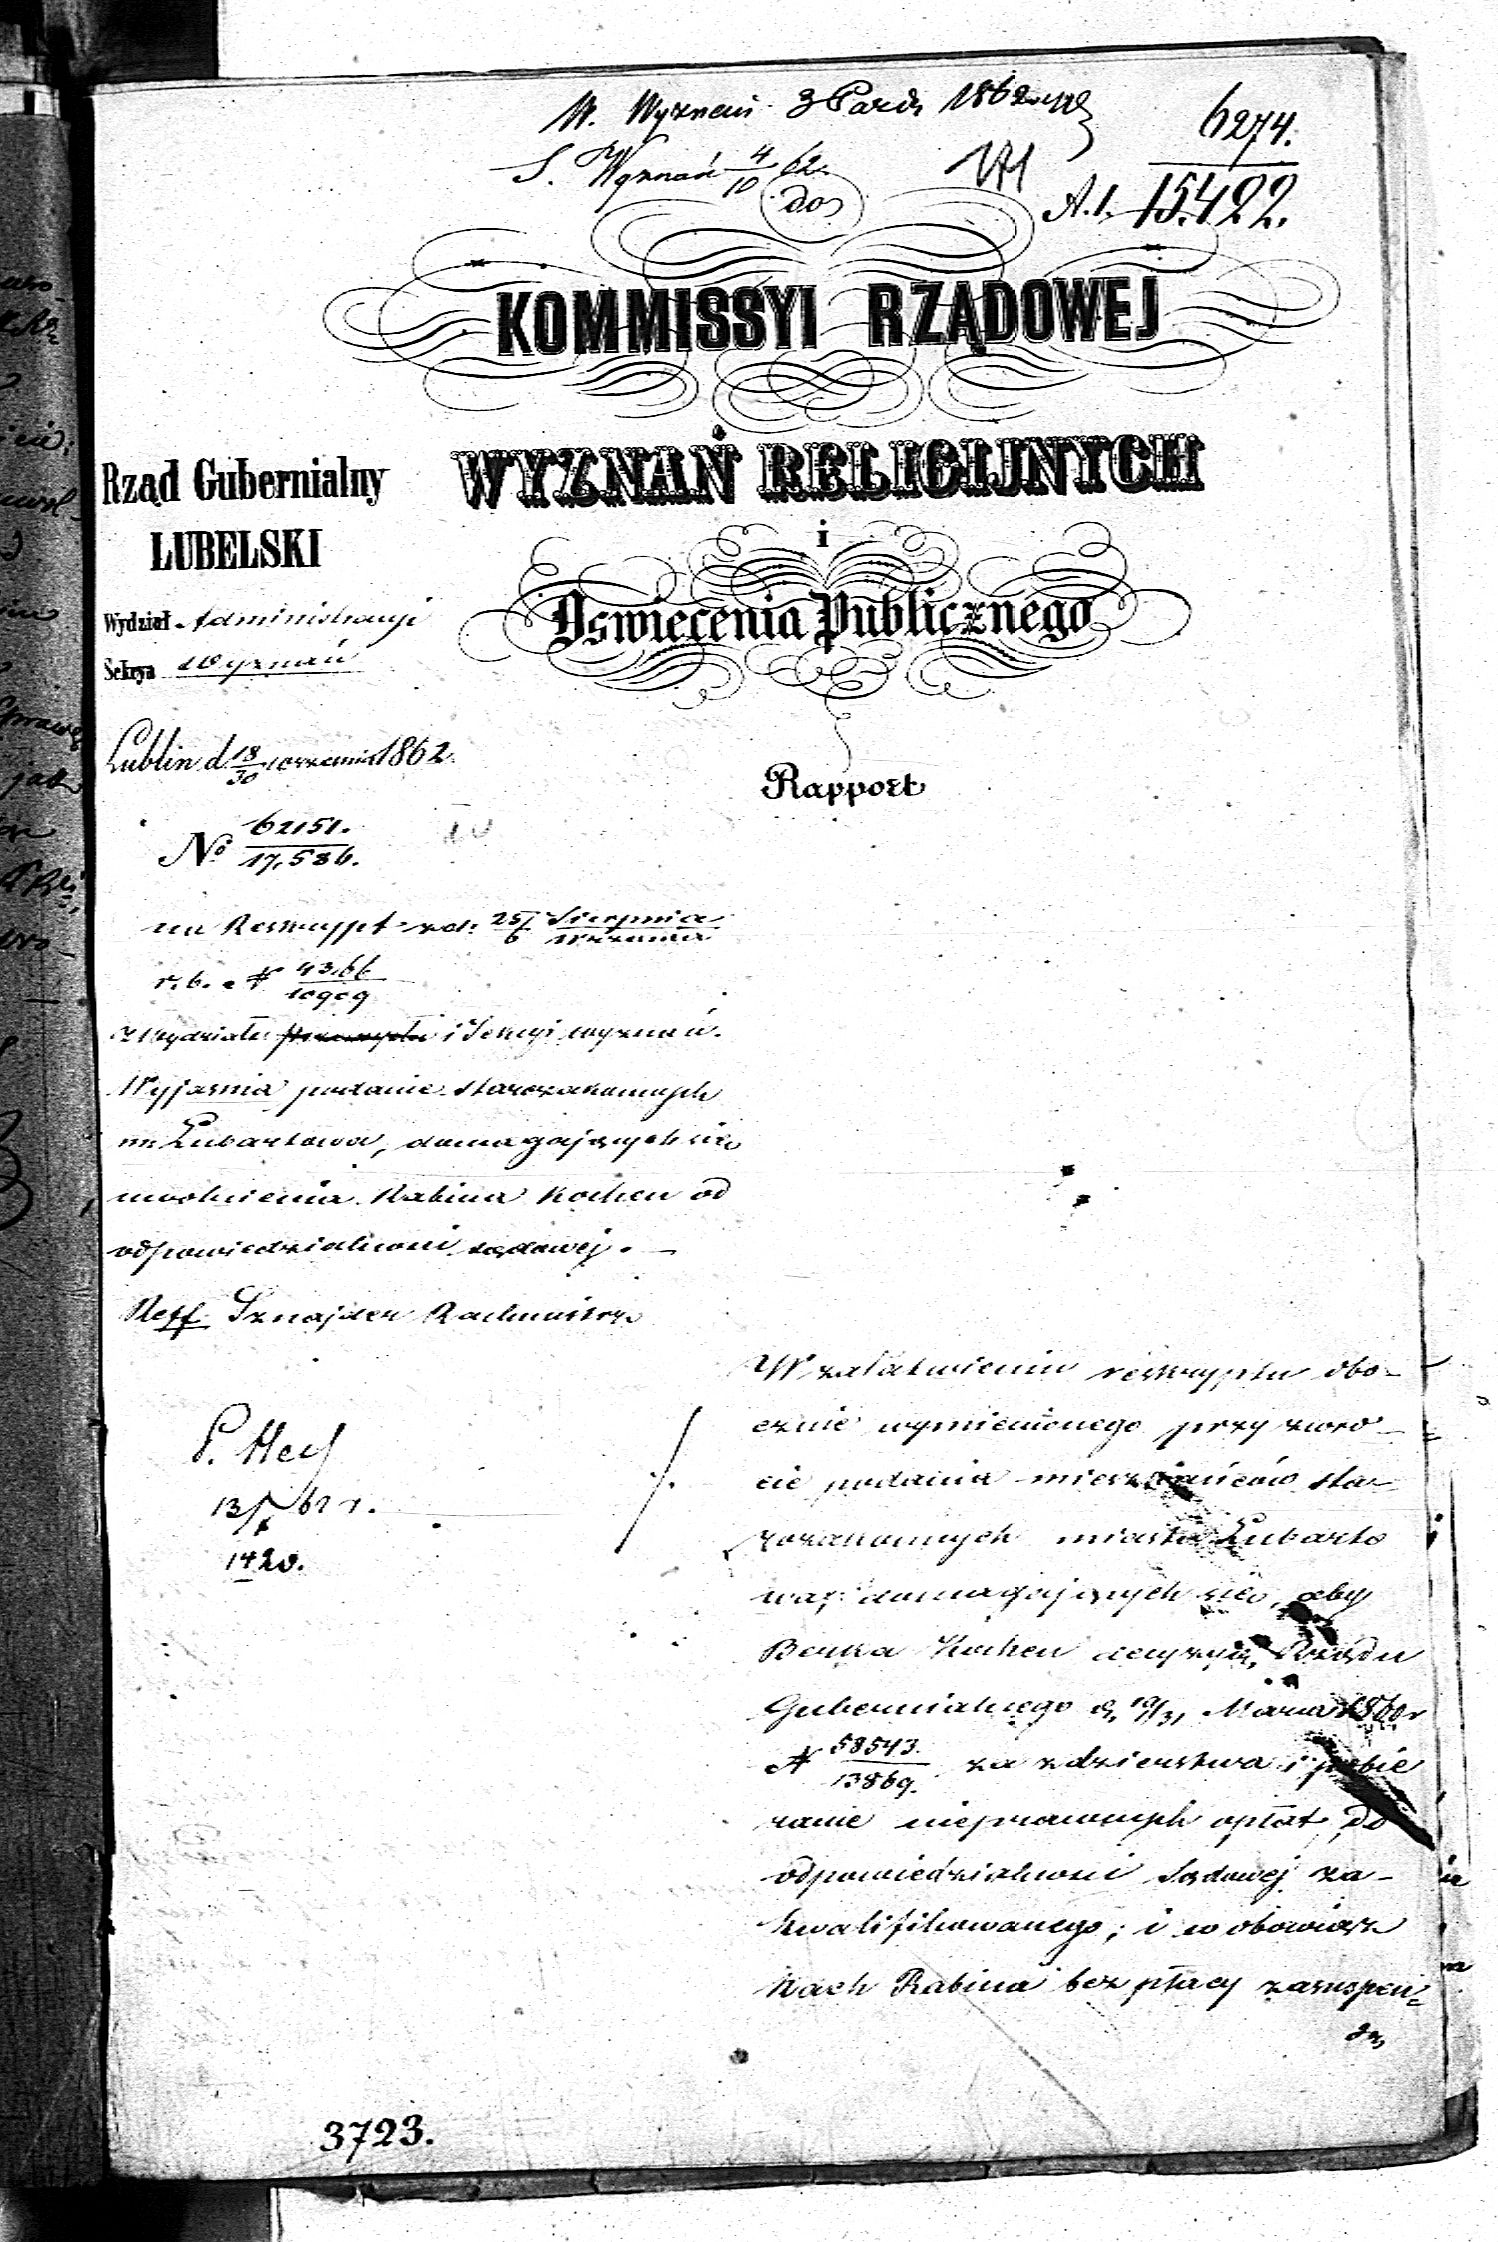 W. Wyznań 3 Paźdz 1862
6274.
S. Wyznań 4/10 62.
171
A.1. 15,422.
do
KOMMISSYI RZĄDOWEJ
WYZNAŃ RELIGIJNYCH
i
Oświecenia Publicznego
Rapport
Rząd Gubernialny
LUBELSKI
Wydział Administracyi
Sekcya Wyznań
Lublin d. 18/30 września 1862.
No 62151./17,586.
na Reskrypt z d. 25/6 Sierpnia/września
r. b. N 4366/10909
z Wydziału i Sekcyi wyznań.
Wyjaśnia podanie starozakonnych
m. Lubartowa, domagających się
uwolnienia Rabina Kochen od
odpowiedzialności sądowej.
Reff. Sznajder
13/X 62 r.
1420.
W załatwieniu reskryptu obo-
cznie wymienionego przy zwro-
cie podania mieszkańców sta-
rozakonnych miasta Lubarto
wa, domagających się, aby
Berka Kochen decyzyą Rządu
Gubernialnego d. 19/31 Marca 1860 r
N 58543./13869. za zdzierstwa i pobie
ranie nieprawnych opłat, do
odpowiedzialności Sądowej za-
kwalifikowanego, i w obowiąz
kach Rabina bez płacy zasuspen-
3723.